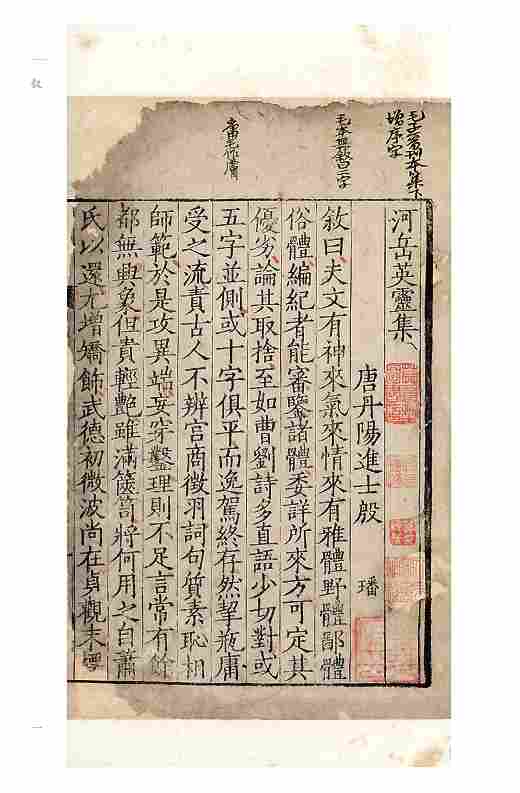 增序字
毛本無敘曰二字
河岳英靈集
唐丹陽進士殷 璠
敘曰夫文有神來氣來情來有雅體野體鄙體
俗體編紀者能審鑒諸體委詳所來方可定其
優劣論其取捨至如曹劉詩多直語少切對或
五字並側或十字俱平而逸駕終存然挈瓶庸
受之流責古人不辨宮商徵羽詞句質素恥相
師範於是攻異端妄穿鑿理則不足言常有餘
都無興象但貴輕艷雖滿篋笥將何用之自蕭
氏以還尤增嬌飾武德初微波尚在貞觀末
一
叙
一